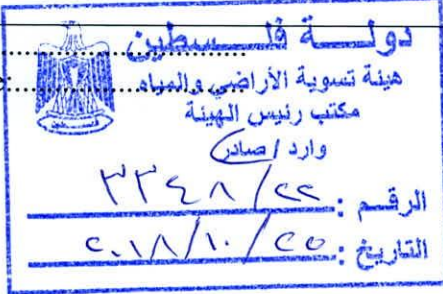 دولـــة فلـــسطين
هيئة تسوية الأراضي والمياه
مكتب رئيس الهيئة
وارد / صادر
الرقم : ٣٣٤٨/٢٢
التاريخ : ٢٠١٨/١٠/٢٥